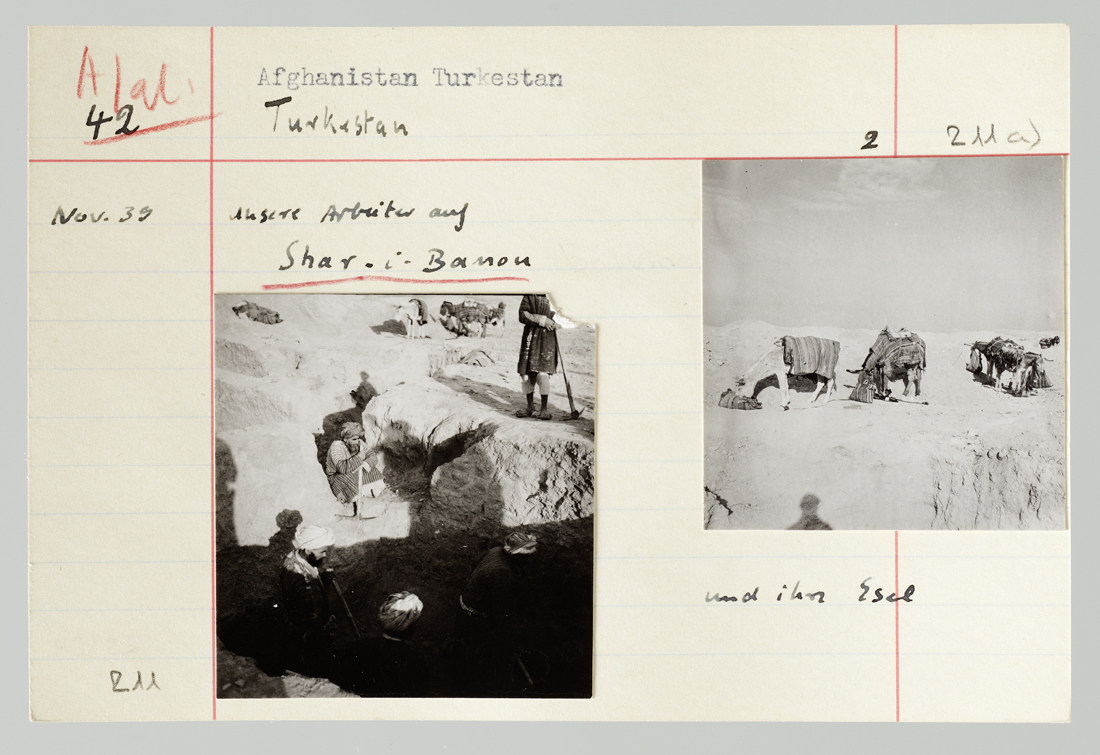 Afghanistan Turkestan
42
Turkestan
2
211 a)
Nov. 39
unsere Arbeiter auf
Shar-i-Banou
und ihre Esel
211